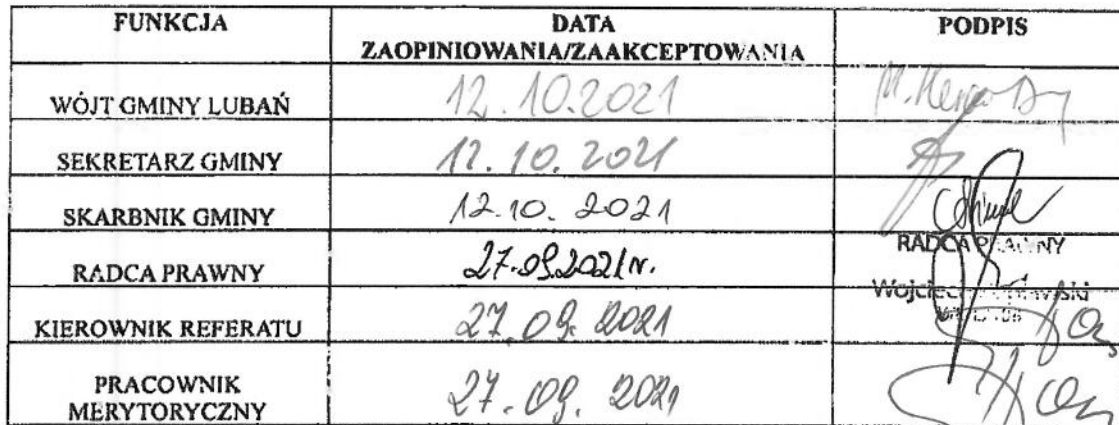 FUNKCJA DATA PODPIS
ZAOPINIOWANIA/ZAAKCEPTOWANIA
WÓJT GMINY LUBAŃ 12.10.2021
SEKRETARZ GMINY 12.10.2021
SKARBNIK GMINY 12.10.2021
RADCA PRAWNY
RADCA PRAWNY 27.09.2021r.
Wojciech
KIEROWNIK REFERATU 27.09.2021
PRACOWNIK
MERYTORYCZNY 27.09.2021